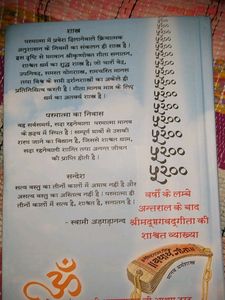 शास्त्र
परमात्मा में प्रवेश दिलानेवाले क्रियात्मक
अनुशासन के नियमों का संकलन ही शास्त्र है।
इस दृष्टि से भगवान श्रीकृष्णोक्त गीता सनातन,
शाश्वत धर्म का शुद्ध शास्त्र है; जो चारों वेद,
उपनिषद, समस्त योगशास्त्र, रामचरित मानस
तथा विश्व के सभी दर्शनशास्त्रों का अकेले ही
प्रतिनिधित्व करती है। गीता मानव मात्र के लिए
धर्म का अतर्क्य शास्त्र है।
परमात्मा का निवास
वह सर्वसमर्थ, सदा रहनेवाला परमात्मा मानव
के हृदय में स्थित है। सम्पूर्ण भावों से उसकी
शरण जाने का विधान है, जिससे शाश्वत धाम,
सदा रहनेवाली शान्ति तथा अनन्त जीवन
की प्राप्ति होती है।
सन्देश
सत्य वस्तु का तीनों कालों में अभाव नहीं है और
असत्य वस्तु का अस्तित्व नहीं है। परमात्मा ही
तीनों कालों में सत्य है, शाश्वत है, सनातन है।
- स्वामी अड़गड़ानन्द
५२००
५२००
५२००
५२००
५२००
५२००
५२००
वर्षों के लम्बे
अन्तराल के बाद
श्रीमद्भगवद्गीता की
शाश्वत व्याख्या
ॐ